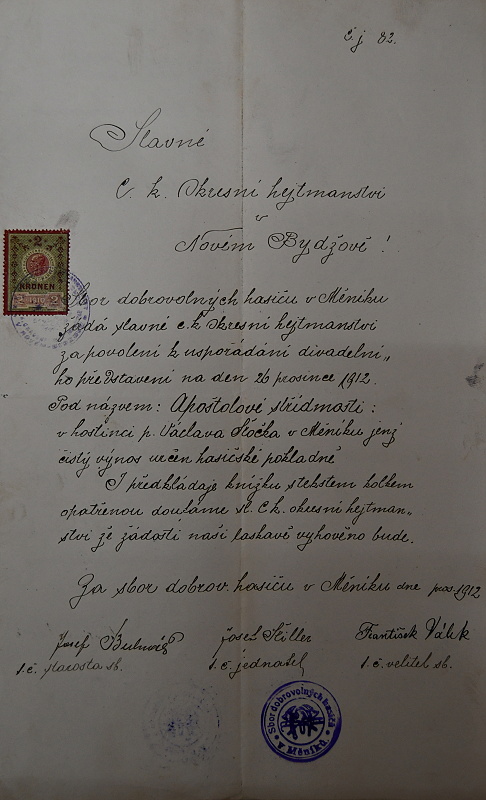 č. j. 82.
Slavné
C. k. Okresní hejtmanství
v
Novém Bydžově!
2
KRONEN
2 1910 2
Sbor dobrovolných hasičů v Měníku
žádá slavné c. k. Okresní hejtmanství
za povolení k uspořádání divadelní„
ho představení na den 26 prosince 1912.
Pod názvem: Apostolové střídmosti:
v hostinci p. Václava v Měníku jenž
čistý výnos určen hasičské pokladně
I předkládaje knížku s tekstem kolkem
opatřenou doufáme sl. C. k. okresní hejtman„
ství že žádosti naší laskavě vyhověno bude.
Za sbor dobrov. hasičů v Měníku dne pros. 1912
Josef Josef František Válek
t. č. starosta sb. t. č. jednatel t. č. velitel sb.
Sbor dobrovolných hasičů
v Měníku.